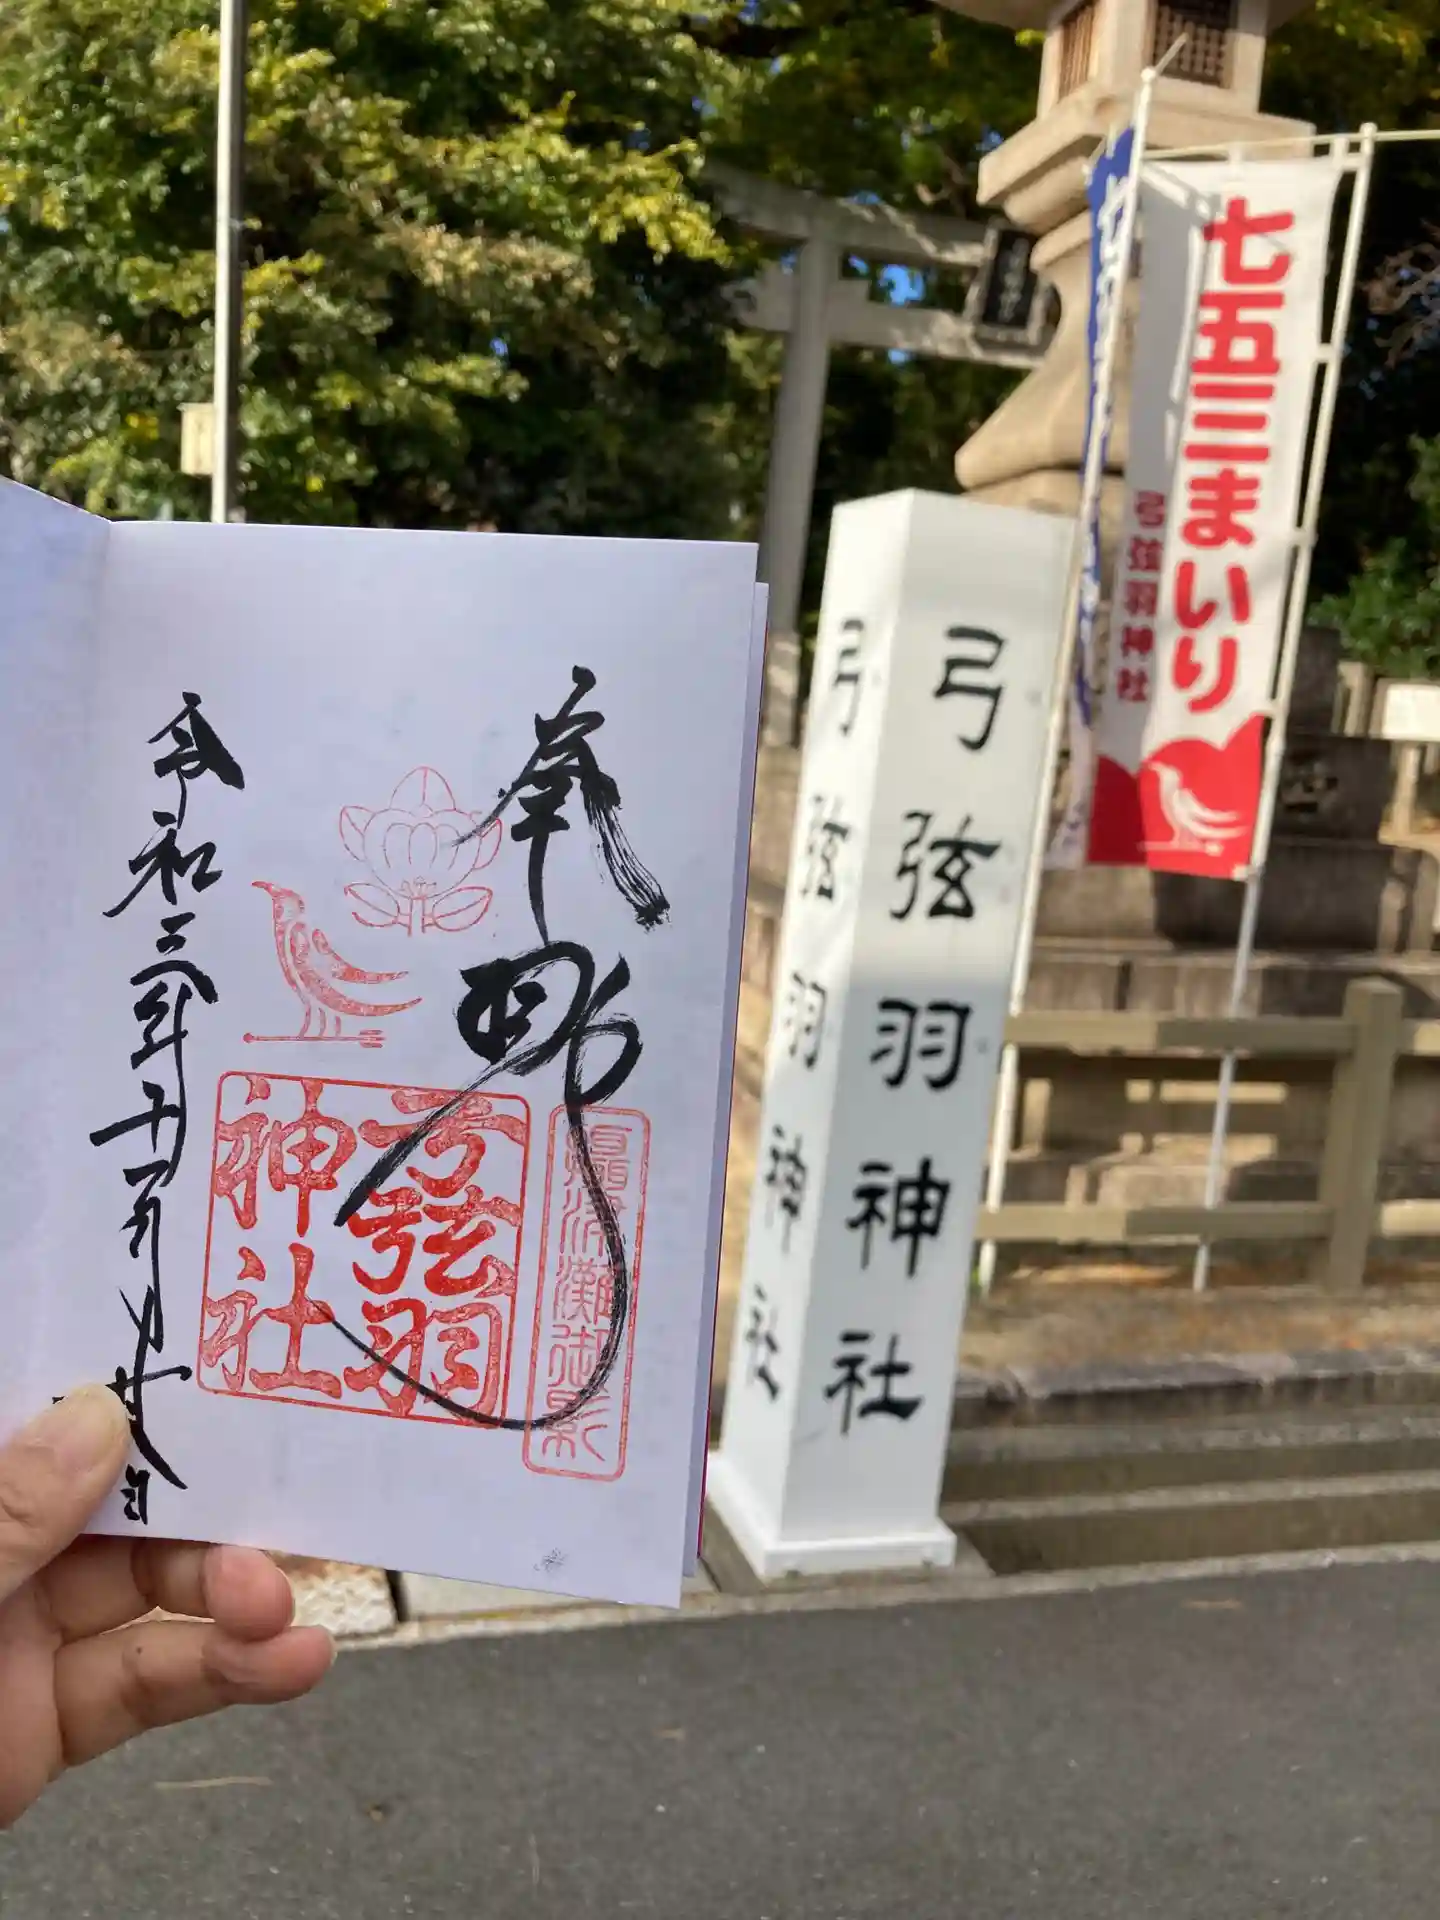 奉拝
摂津灘御影
弓弦羽
神社
令和三年十一月廿八日
弓弦羽神社
弓弦羽神社
七五三まいり
弓弦羽神社